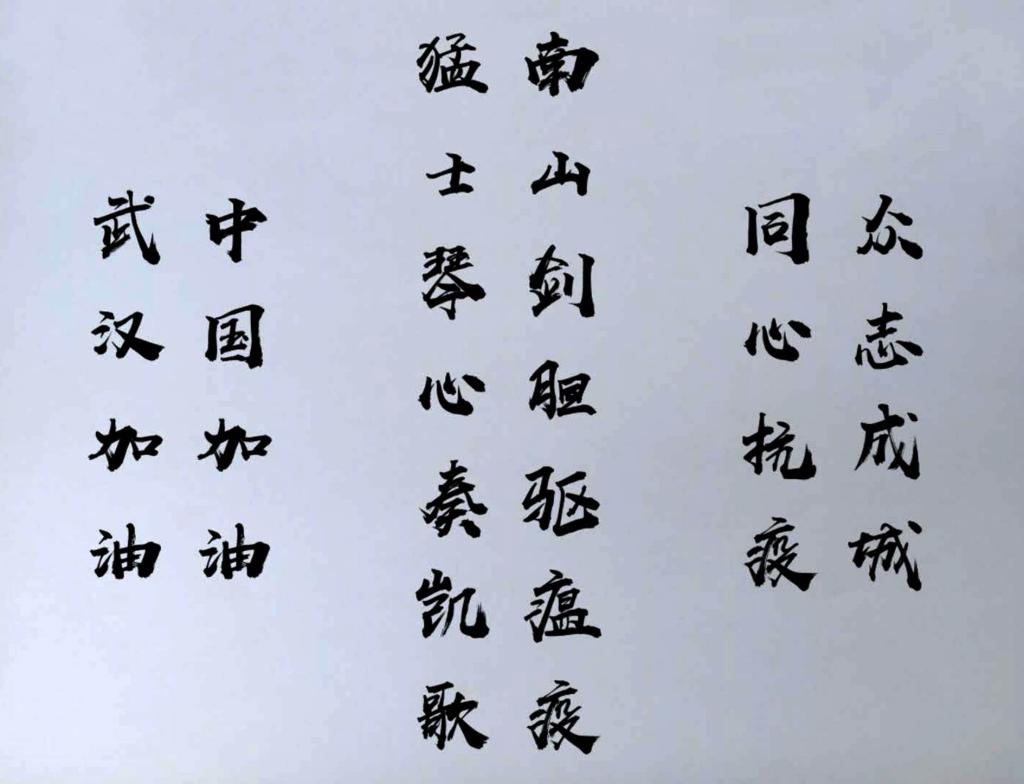 众志成城
同心抗疫
南山剑胆驱瘟疫
猛士琴心奏凯歌
中国加油
武汉加油